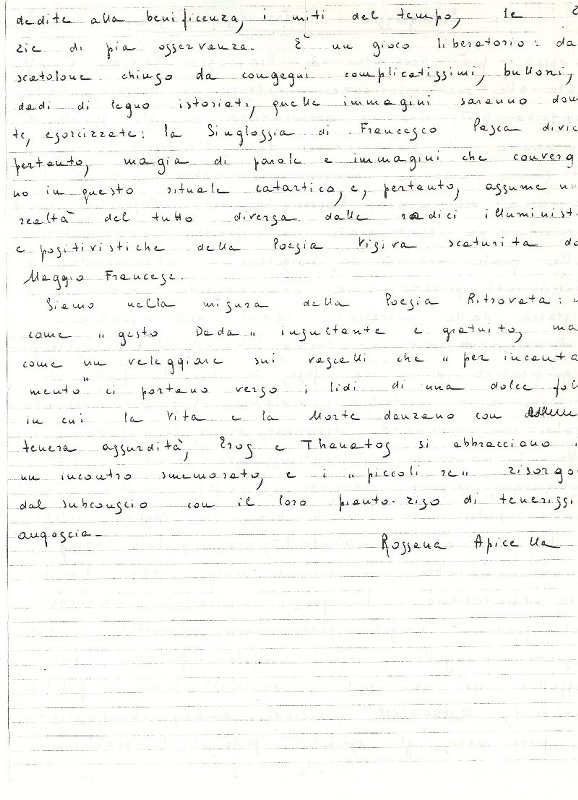 dedite alla beneficenza, i miti del tempo, le z
zie di pia osservanza. È un gioco liberatorio: da
scatolone chiuso da congegni complicatissimi, bulloni,
dadi di legno istoriati, quelle immagini saranno dom
te, esorcizzate: la Singlossia di Francesco Pasca divie
pertanto, magia di parole e immagini che converg
no in questo rituale catartico, e, pertanto, assume un
realtà del tutto diversa dalle radici illuminist
e positivistiche della Poesia Visiva scaturita da
Maggio Francese.
Siamo nella misura della Poesia Ritrovata:
come "gesto Dada" insultante e gratuito, ma
come un veleggiare sui vascelli che "per incanta
mento" ci portano verso i lidi di una dolce foll
in cui la Vita e la Morte danzano con
tenera assurdità, Eros e Thanatos si abbracciano i
un incontro smemorato, e i "piccoli re" risorgo
dal subconscio con il loro pianto-riso di tenerissi
angoscia-
Rossana Apicella